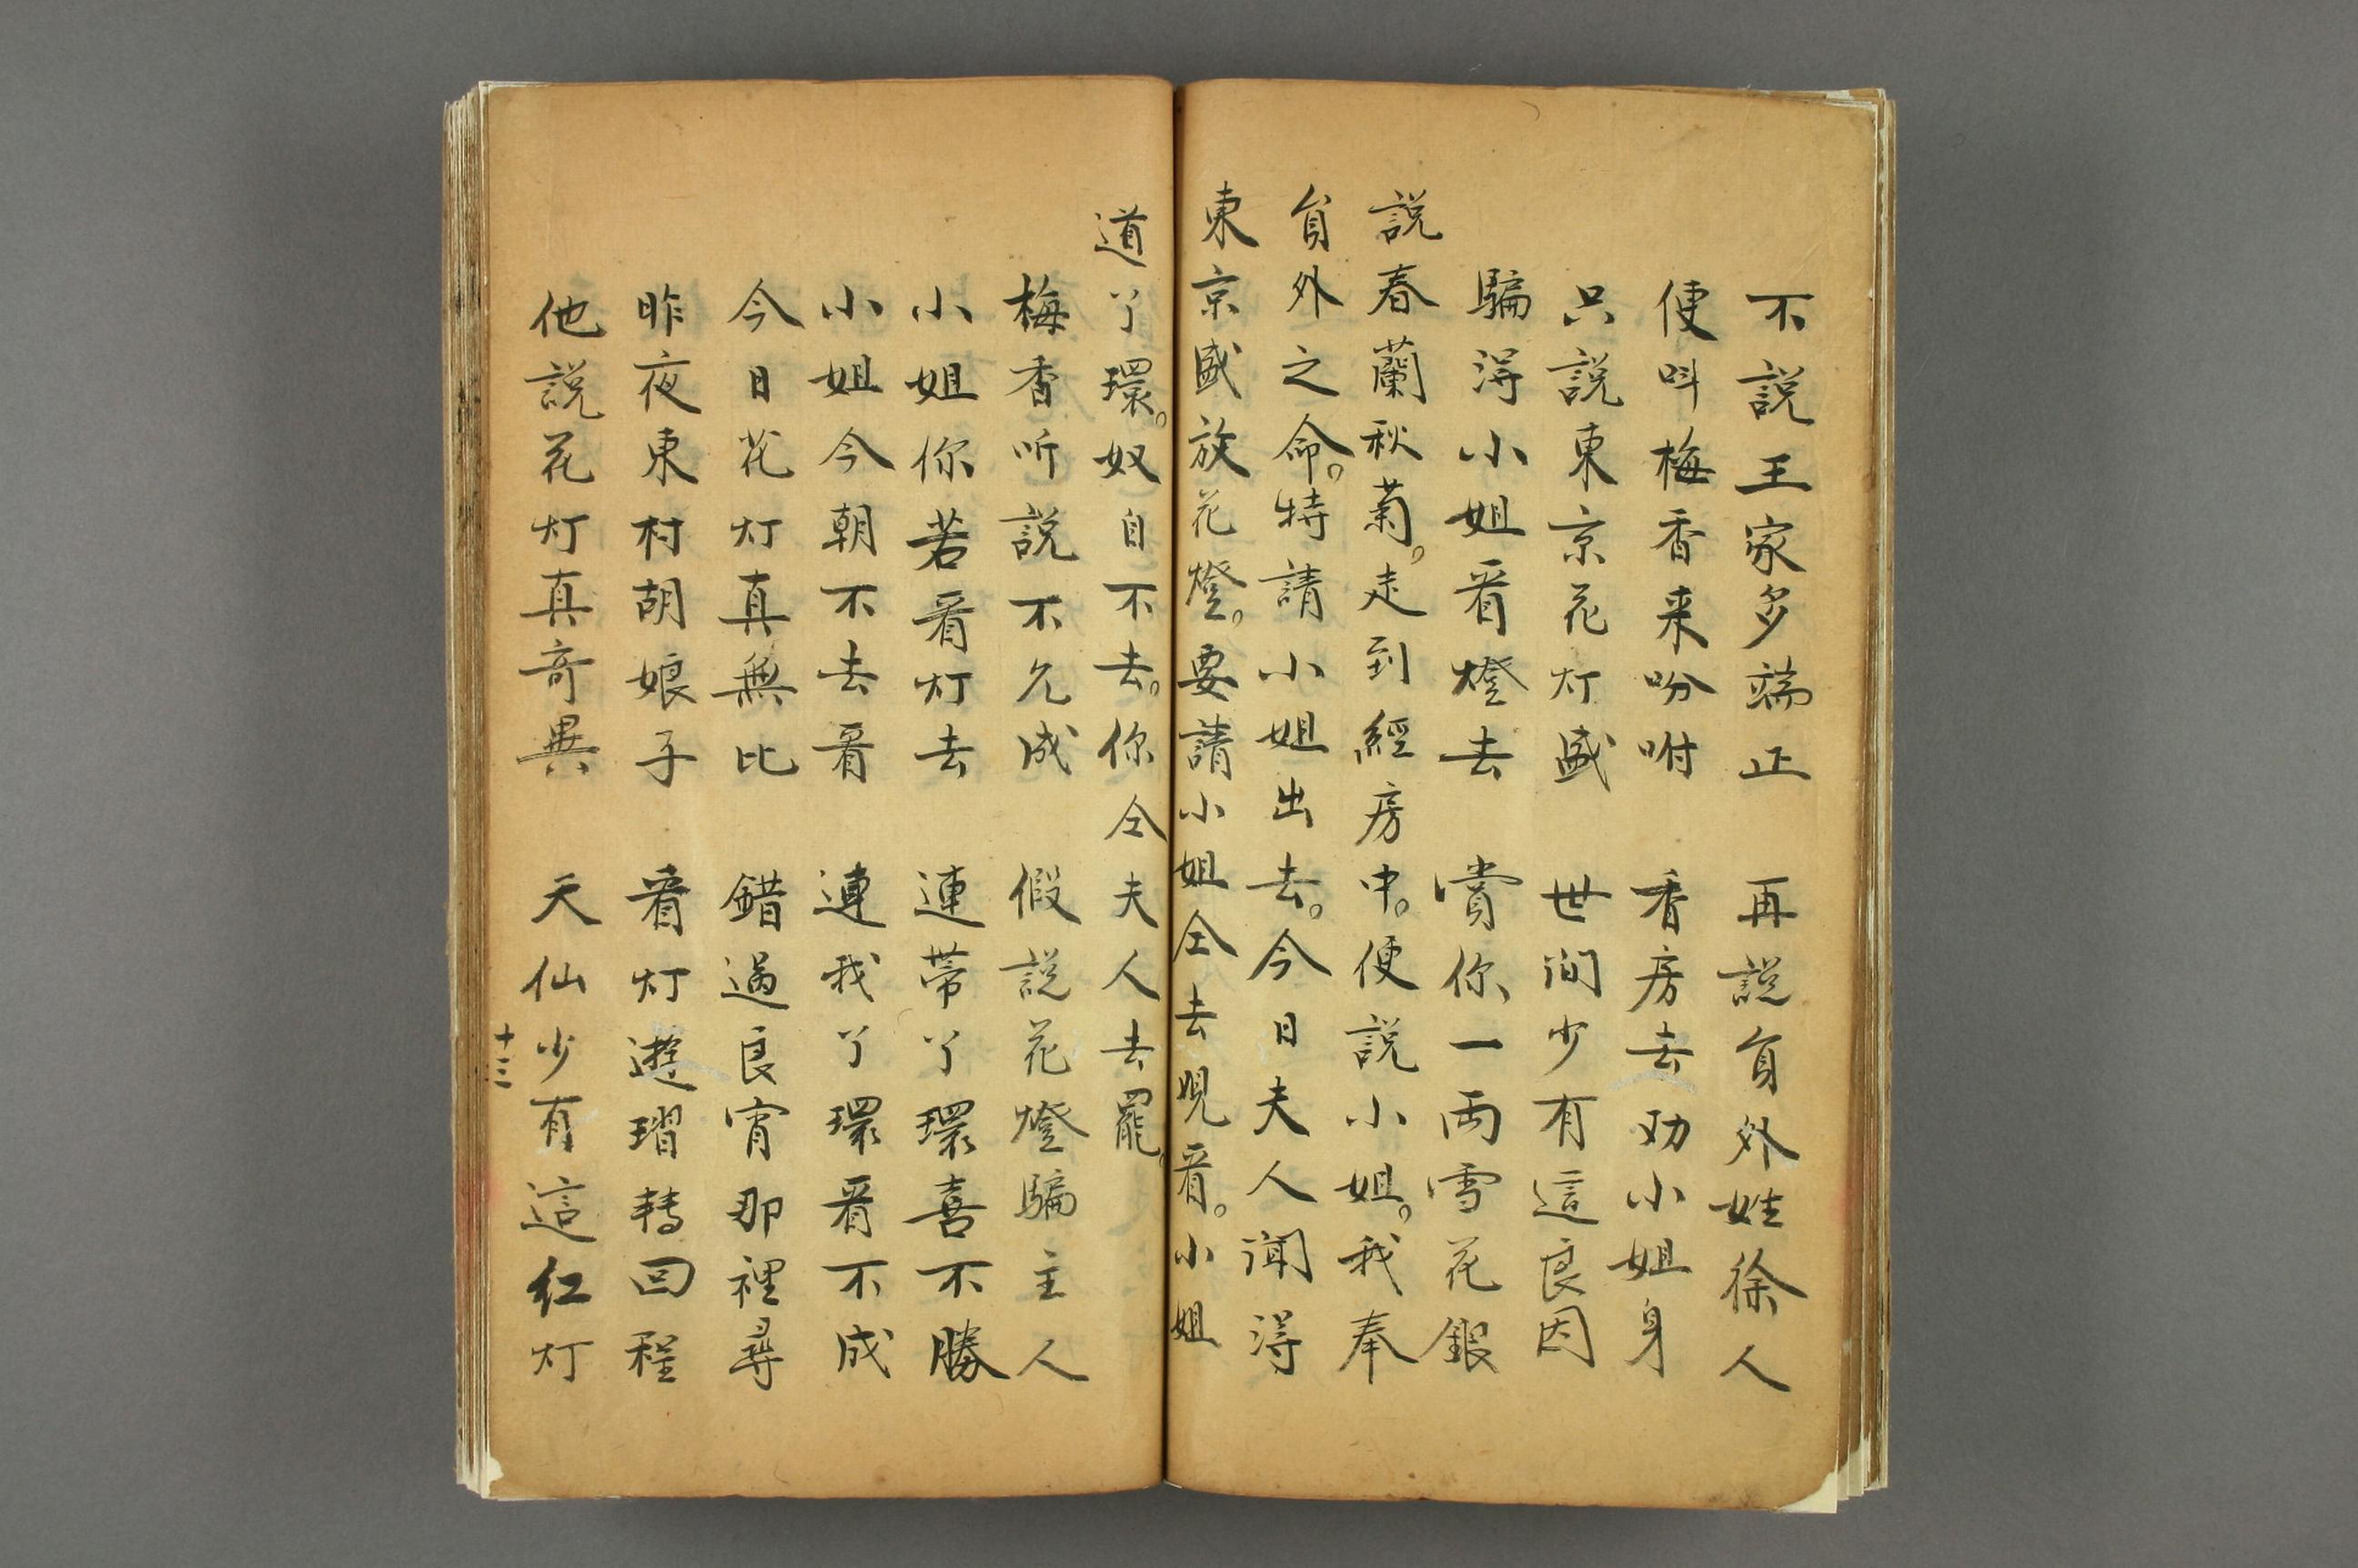 不說王家多端正　再說員外姓徐人
便呌梅香来吩咐　香房去劝小姐身
只說東京花灯盛　世间少有這良因
騙得小姐看燈去　賞你一両雪花銀
說春蘭秋菊。走到經房中。便說小姐。我奉
員外之命。特請小姐出去。今日夫人闻得
東京盛放花燈。要請小姐仝去覌看。小姐
道丫環。奴自不去。你仝夫人去罷。
梅香听說不允成　假說花燈騙主人
小姐你若看灯去　連蒂丫環喜不勝
小姐今朝不去看　連我丫環看不成
今日花灯真無比　錯過良宵那裡尋
昨夜東村胡娘子　看灯遊瑠轉回程
他說花灯真奇異　天仙少有這红灯
十三